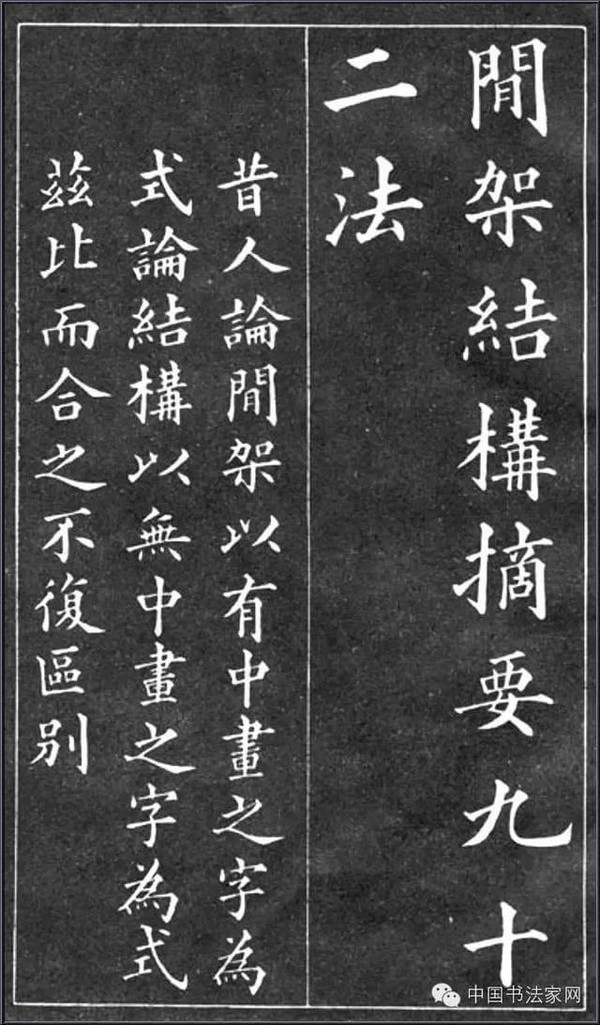 閒架結構摘要九十
二法
昔人論閒架以有中畫之字為
式論結構以無中畫之字為式
茲比而合之不復區別
中国书法家网